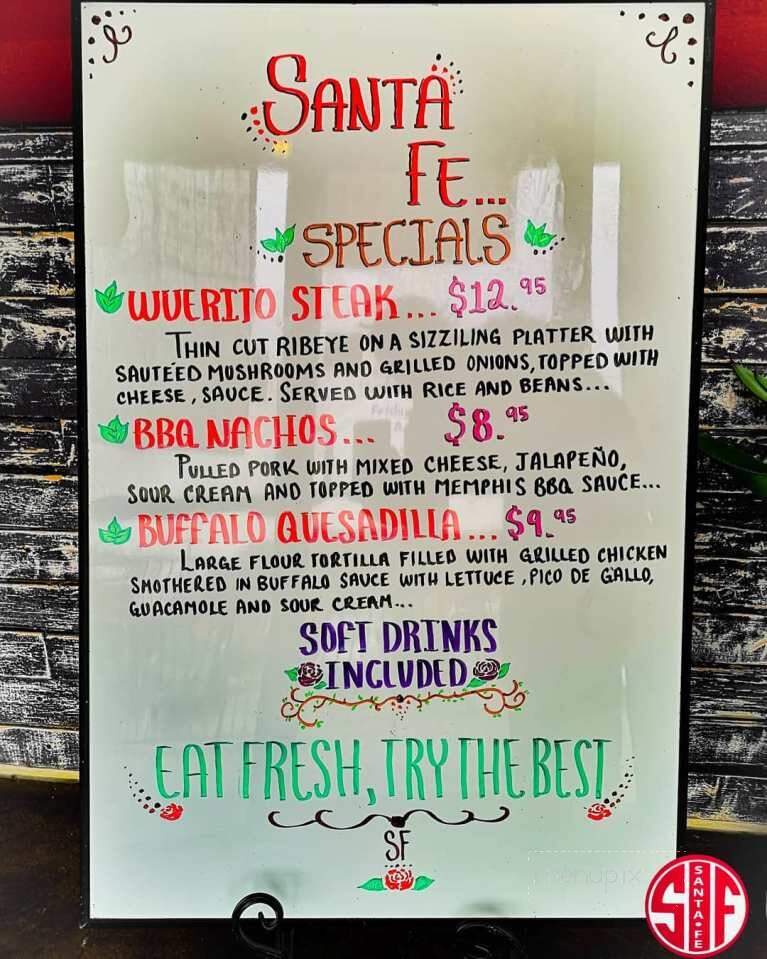 SANTA
FE...
SPECIALS
WUERITO STEAK... $12.95
THIN CUT RIBEYE ON A SIZZILING PLATTER WITH
SAUTÉED MUSHROOMS AND GRILLED ONIONS, TOPPED WITH
CHEESE, SAUCE. SERVED WITH RICE AND BEANS...
BBQ NACHOS... $8.95
PULLED PORK WITH MIXED CHEESE, JALAPEÑO,
SOUR CREAM AND TOPPED WITH MEMPHIS BBQ SAUCE...
BUFFALO QUESADILLA... $9.95
LARGE FLOUR TORTILLA FILLED WITH GRILLED CHICKEN
SMOTHERED IN BUFFALO SAUCE WITH LETTUCE, PICO DE GALLO,
GUACAMOLE AND SOUR CREAM...
SOFT DRINKS
INCLUDED
EAT FRESH, TRY THE BEST
SF
menupix
SF
SANTA FE